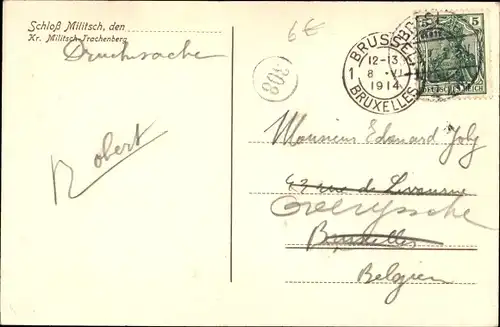 Schloß Militsch, den
Kr. Militsch-Trachenberg
Drucksache
6€
308
BRUSSEL
1
12-13
8 VI
1914
BRUXELLES
5
DEUTSCHES REICH
Robert
Monsieur Edouard Joly
43 rue de Livourne
Overyssche
Bruxelles
Belgien